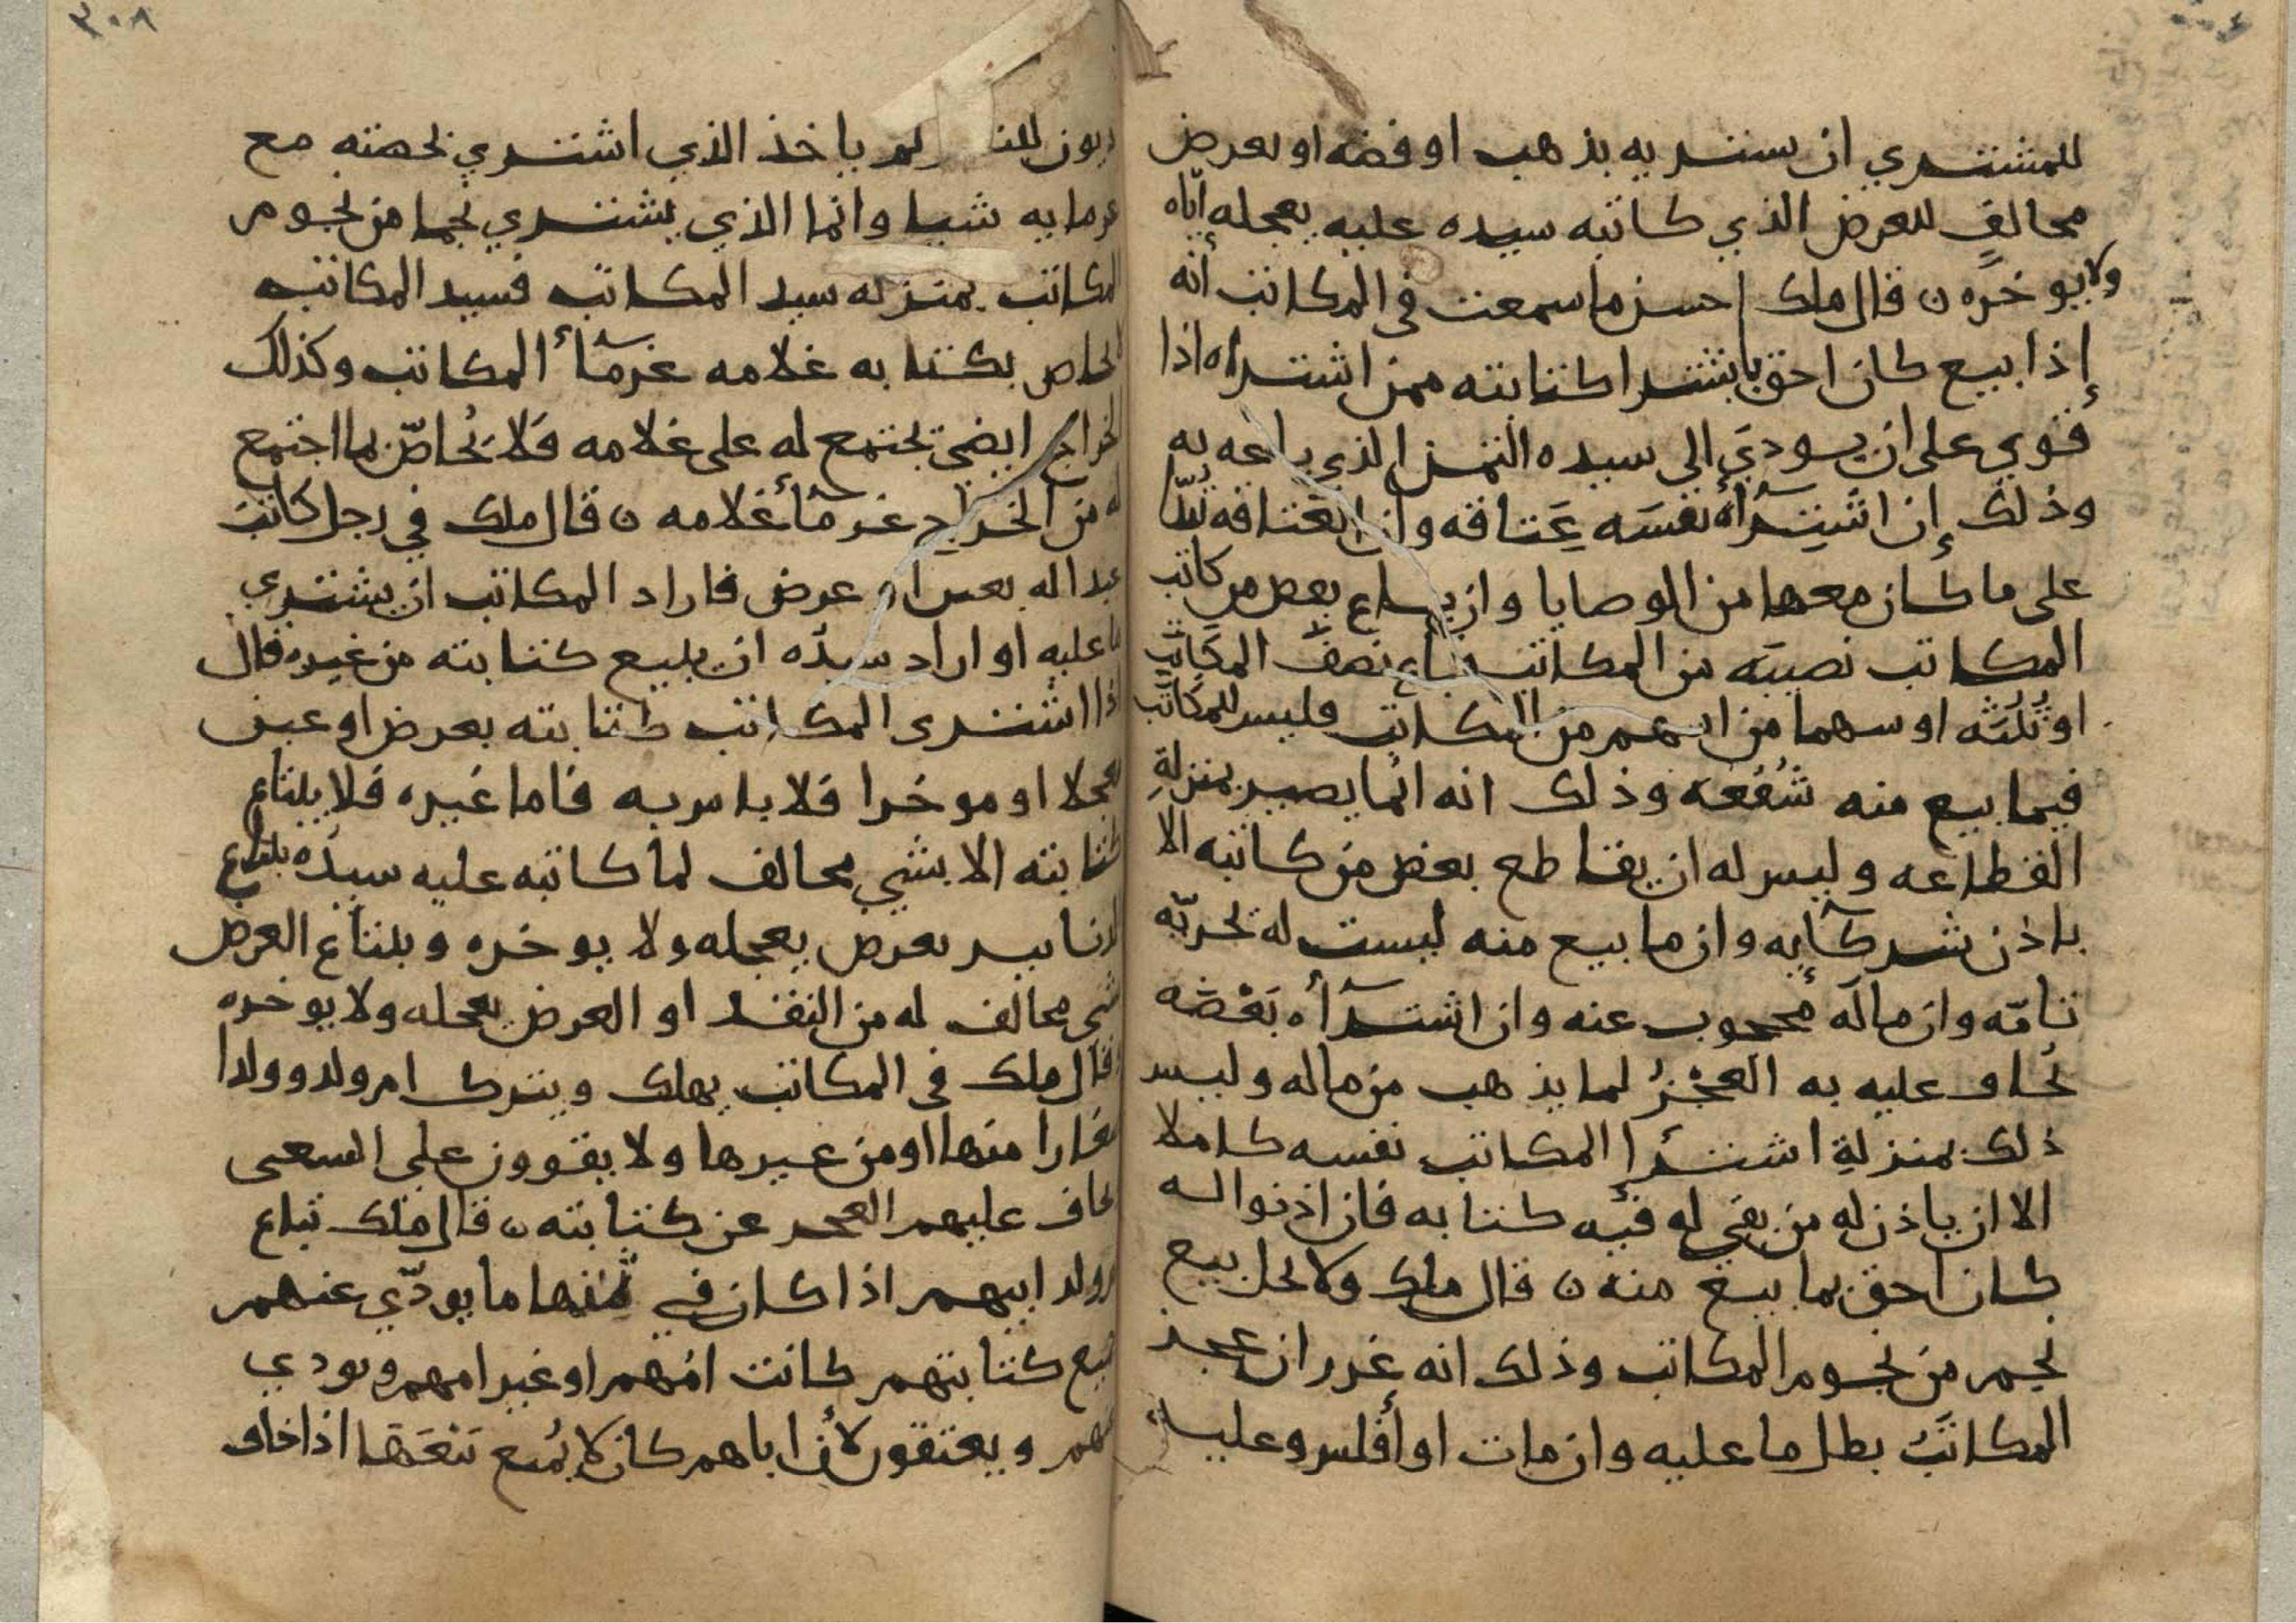 للمشتري ان يشتريه بذهب او فضه او بعرض
مخالفٍ للعرض الذي كاتبه سيده عليه يعجله اياه
ولا يوخره ن قال ملك احسن ما سمعت في المكاتب أنه
إذا بيع كان احق باشترا كتابته ممن اشتراه اذا
قوي على ان يودي الى سيده الثمن الذي باعه به
وذلك إن اشتِرَآأه نفسَه عَتاقه وان العَتاقه تبدّا
على ما كان معها من الوصايا وان باع بعض من كاتب
المكاتب نصيبَه من المكاتب فباع نصفَ المكاتَبِ
او ثُلُثَه او سهما من اسهم من المكاتب فليس للمكاتَب
فيما بيع منه شُفُعَه وذلك انه انما يصير بمنزلةِ
القطاعه وليس له ان يقاطع بعض من كاتبه الا
باذن شركآيه وان ما بيع منه ليست له بحريّه
تامّه وان مالَه مُحجوب عنه وان اشترآأه بَعْضَه
يُخاف عليه به العجْزُ لما يذهب من ماله وليس
ذلك بمنزلةِ اشترَا المكاتب نفسه كاملا
الا ان ياذن له من بقي له فيه كتابه فان اذنوا له
كان احق بما بيع منه ن قال ملك ولا يحل بيع
نجم من نجوم المكاتب وذلك انه غرر ان عجز
المكاتَبُ بطل ما عليه وان مات او أفلس وعليه
٣٠٨
ديون للنا لم ياخذ الذي اشتري نجمه بحصته مع
غرمايه شيا وانما الذي يشتري نجما من نجوم
المكاتب بمنزله سيد المكاتب فسيد المكاتب
لا يحاص بكتابه غلامه غرمآأ المكاتب وكذلك
الخراج ايضي يجتمع له على غلامه فلا يُحاصّ بما اجتمع
له من الخراج غرمآأ غلامه ن قال ملك في رجل كاتبَ
عبدا له بعين او عرض فاراد المكاتب ان يشتري
ما عليه او اراد سيدُه ان يبيع كتابته من غيره قال
اذا اشترى المكاتب كتابته بعرض او عين
معجلا او موخرا فلا باس به فاما غيره فلا يبتاع
كتابته الا بشي مخالف لما كاتبه عليه سيدُه يبتاع
الدنانير بعرض يعجله ولا يوخره ويبتاع العرض
بشي مخالف له من النقد او العرض يعجله ولا يوخره
وقال ملك في المكاتب يهلك ويترك ام ولد وولدا
صغارا منها او من غيرها ولا يقوون على السعي
يخاف عليهم العجز عن كتابته ن قال ملك تباع
ام ولد ابيهم اذا كان في ثمنها ما يودّي عنهم
جميع كتابتهم كانت امّهم او غير امهم ويودي
عنهم ويعتقون لأن اباهم كان لا يُمنع بَيْعَها اذا خاف